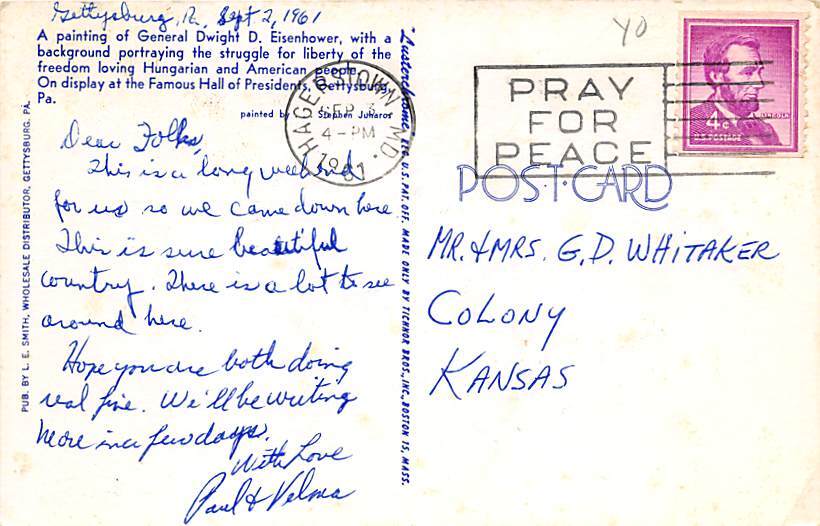 Gettysburg, Pa. Sept 2, 1961
A painting of General Dwight D. Eisenhower, with a
background portraying the struggle for liberty of the
freedom loving Hungarian and American people.
On display at the Famous Hall of Presidents, Gettysburg,
Pa.
painted by Stephen Juharos
Dear Folks,
This is a long weekend
for us so we came down here.
This is sure beautiful
country. There is a lot to see
around here.
Hope you are both doing
real fine. We'll be writing
more in a few days.
With Love
Paul & Velma
PUB. BY L. E. SMITH, WHOLESALE DISTRIBUTOR, GETTYSBURG, PA.
"Lusterchrome" REG. U. S. PAT. OFF. MADE ONLY BY TICHNOR BROS., INC., BOSTON 15, MASS.
HAGERSTOWN, MD.
SEP 3
4 - PM
1961
PRAY
FOR
PEACE
YO
4¢
LINCOLN
U.S. POSTAGE
POST CARD
MR. & MRS. G. D. WHITAKER
COLONY
KANSAS